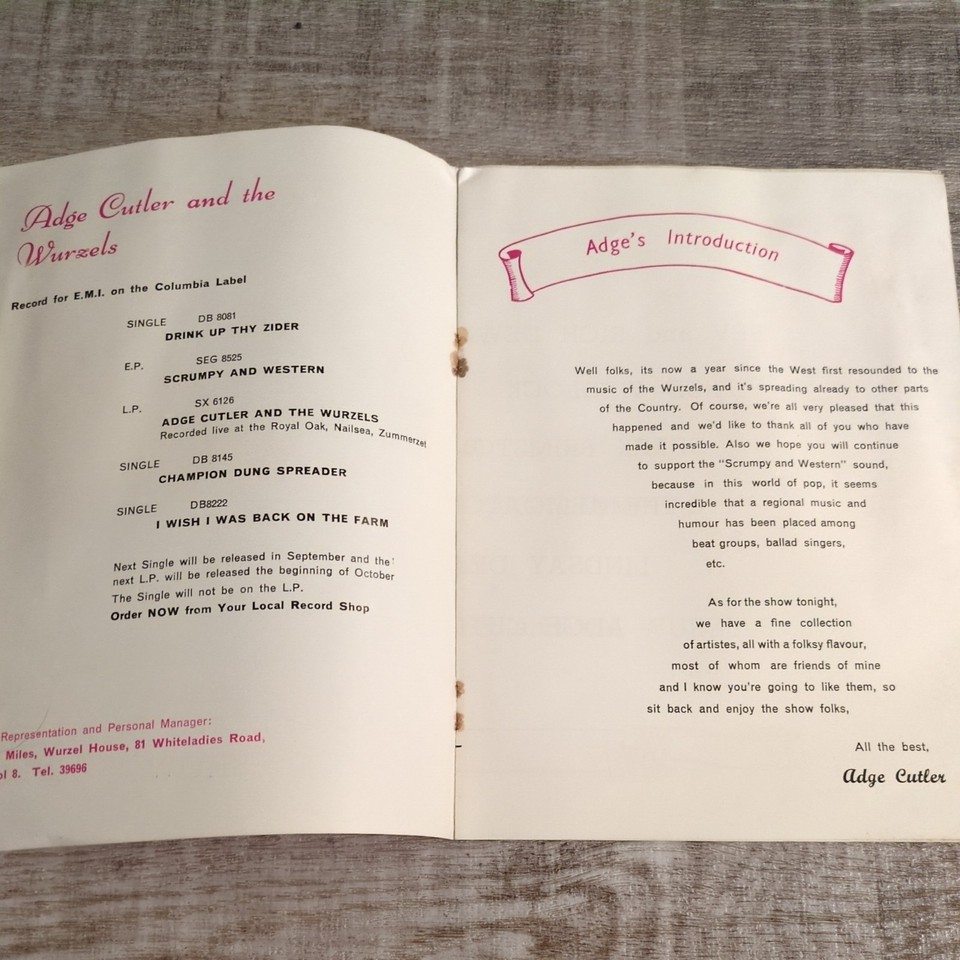 Adge Cutler and the
Wurzels
Record for E.M.I. on the Columbia Label
SINGLE DB 8081
DRINK UP THY ZIDER
E.P. SEG 8525
SCRUMPY AND WESTERN
L.P. SX 6126
ADGE CUTLER AND THE WURZELS
Recorded live at the Royal Oak, Nailsea, Zummerzet
SINGLE DB 8145
CHAMPION DUNG SPREADER
SINGLE DB8222
I WISH I WAS BACK ON THE FARM
Next Single will be released in September and the
next L.P. will be released the beginning of October
The Single will not be on the L.P.
Order NOW from Your Local Record Shop
Representation and Personal Manager:
Miles, Wurzel House, 81 Whiteladies Road,
ol 8. Tel. 39696
Adge's Introduction
Well folks, its now a year since the West first resounded to the
music of the Wurzels, and it's spreading already to other parts
of the Country. Of course, we're all very pleased that this
happened and we'd like to thank all of you who have
made it possible. Also we hope you will continue
to support the "Scrumpy and Western" sound,
because in this world of pop, it seems
incredible that a regional music and
humour has been placed among
beat groups, ballad singers,
etc.
As for the show tonight,
we have a fine collection
of artistes, all with a folksy flavour,
most of whom are friends of mine
and I know you're going to like them, so
sit back and enjoy the show folks,
All the best,
Adge Cutler